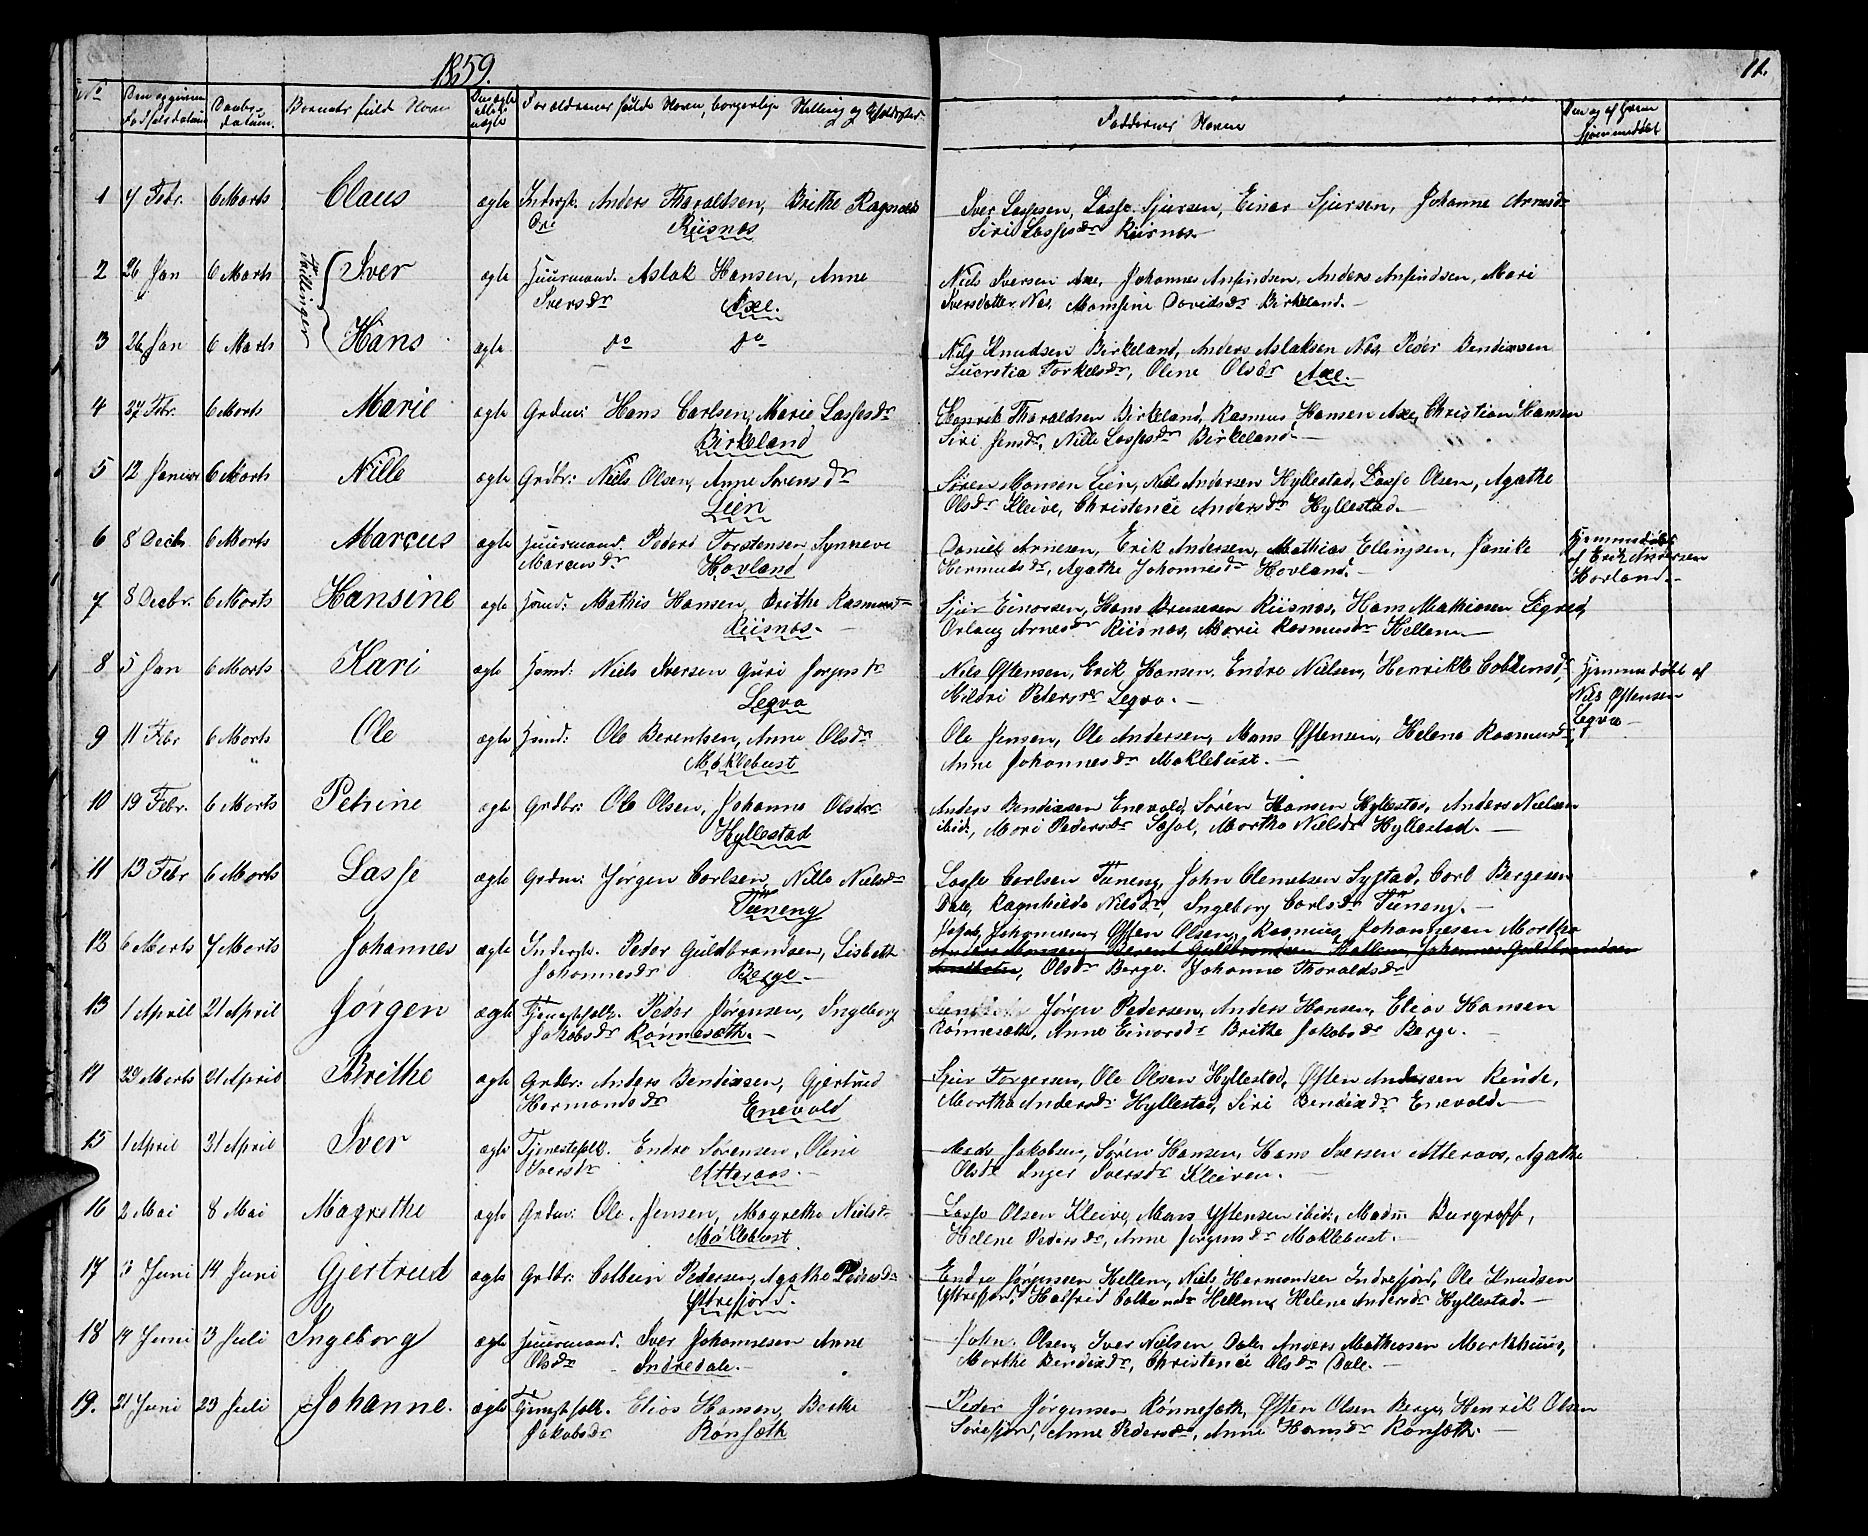 1859.
11.
No
Den opgivne Fødselsdatum
Daabs-datum.
Barnets fulde Navn
Om ægte eller uægte
Forældrenes fulde Navn, borgerlige Stilling og Opholdssted
Faddernes Navne
Hjemmedøbt
1 7 Febr. 6 Marts Claus ægte Inderst. Anders Tharaldsen, Brithe Ragnvalds
Riisnæs
Iver Lassesen, Lasse Sjursen, Einar Sjursen, Johanne Arnesdr
Siri Lassesdr Riisnæs.
Tvillinger
2 26 Jan 6 Marts Iver ægte Huusmand. Aslak Hansen, Anne
Iversdr Axe.
Niels Iversen Axe, Johannes Anfindsen, Anders Anfindsen, Mari
Iversdatter Næs, Monsine Davidsdr Birkeland.
3 26 Jan 6 Marts Hans ægte do do
Nils Knudsen Birkeland, Anders Aslaksen Næs, Peder Bendixsen
Lucretia Torkelsdr, Oline Olsdr Axe.
4 27 Febr. 6 Marts Marie ægte Grdm: Hans Carlsen, Marie Lassesdr
Birkeland
Henrik Tharaldsen Birkeland, Rasmus Hansen Axe, Christian Hansen
Siri Jensdr, Nille Lassesdr Birkeland.
5 12 Januar 6 Marts Nille ægte Grdbr: Niels Olsen, Anne Sørensdr
Lien
Søren Monsen Lien, Nils Andersen Hyllestad, Lasse Olsen, Agathe
Olsdr Kleive, Christence Andersdr Hyllestad.
6 8 Decbr 6 Marts Marcus ægte Huusmand. Peder Torstensen, Synneve
Marcusdr Hovland
Daniel Arnesen, Erik Andersen, Mathias Ellingsen, Janike
Hermundsdr, Agathe Johannesdr Hovland.
Hjemmedøbt
af Erik Andersen
Hovland.
7 8 Decbr. 6 Marts Hansine ægte Hmd: Mathis Hansen, Brithe Rasmusdr
Riisnæs.
Sjur Einarsen, Hans Riisnæs, Hans Mathiasen Ligred,
Arnesdr Riisnæs, Marie Rasmusdr Hellem
8 5 Jan 6 Marts Kari ægte Hmd: Niels Iversen Guri Jørgensdr
Leqvo
Nils Øftensen, Erik Hansen, Endre Nielsen, Henrikke Colbensdr,
Mildri Pedersdr Leqvo.
Hjemmedøbt af
Nils Øftensen
Leqvo
9 11 Febr 6 Marts Ole ægte Hmd: Ole Berentsen, Anne Olsdr
Møklebust
Ole Jensen, Ole Andersen, Mons Øftensen, Helene Rasmusdr,
Anne Johannesdr Møklebust.
10 19 Febr. 6 Marts Petrine ægte Grdbr: Ole Olsen, Johanne Olsdr
Hyllestad
Anders Bendixsen Enevold, Søren Hansen Hyllestad, Anders Nielsen
ibid., Mari Pedersdr Sæsol, Marthe Nielsdr Hyllestad.
11 13 Febr 6 Marts Lasse ægte Grdm: Jørgen Carlsen, Nille Nielsdr
Tüneng
Lasse Carlsen Tüneng, John Clemetsen Systad, Carl Børgesen
Dale, Ragnhilde Nilsdr, Ingeborg Carlsdr Tüneng.
12 6 Marts 7 Marts Johannes ægte Inderst. Peder Guldbrandsen, Lisbeth
Johannesdr Berge.
Johannesen, Øften Olsen, Rasmus Johannesen Marthe
Anders Monsen, Berent Guldbrandsen Hellem, Johannes Guldbrandsen
Olsdr Berge. Johanne Tharaldsdr
13 1 April 21 April Jørgen ægte Tjenestefolk. Peder Jørgensen, Ingeborg
Jakobsdr Rønnesæth.
Jørgen Pedersen, Anders Hansen, Elias Hansen
Rønnesæth, Anne Einarsdr Brithe Jakobsdr Berge.
14 22 Marts 21 April Brithe ægte Grdbr: Anders Bendixsen, Gjertrud
Hermundsdr Enevold
Sjur Torgersen, Ole Olsen Hyllestad, Øften Andersen Rinde,
Marthe Andersdr Hyllestad, Siri Bendixdr Enevold.
15 1 April 31 April Iver ægte Tjenestefolk. Endre Sørensen, Oline
Iversdr Atteraas.
Mads Jakobsen, Søren Hansen, Hans Iversen Atteraas, Agathe
Olsdr Inger Iversdr Kleiven.
16 2 Mai 8 Mai Magrethe ægte Grdm: Ole Jensen, Magrethe Nielsdr
Møklebust
Lasse Olsen Kleive, Mons Øftensen ibid.,
Helene Pedersdr, Anne Jørgensdr Møklebust.
17 3 Juni 14 Juni Gjertrud ægte Grdbr: Colbein Pedersen, Agathe Pedersdr
Ytrefjord.
Endre Jørgensen Hellem, Niels Hermundsen Indrefjord, Ole Knudsen
Ytrefjord, Halfrid Colbensdr Hellem, Helene Andersdr Hyllestad.
18 14 Juni 3 Juli Ingeborg ægte Huusmand. Iver Johannesen Anne
Olsdr Indredale.
John Olsen, Iver Nielsen Dale, Anders Mathiasen Markhuus,
Marthe Bendixdr, Christence Olsdr Dale.
19. 21 Juni 23 Juli Johanne. ægte Tjenestefolk. Elias Hansen, Berthe
Jakobsdr Rønsæth
Peder Jørgensen Rønnesæth, Øften Olsen Berge, Henrik Olsen
Sørefjord, Anne Pedersdr, Anne Hansdr Rønsæth.